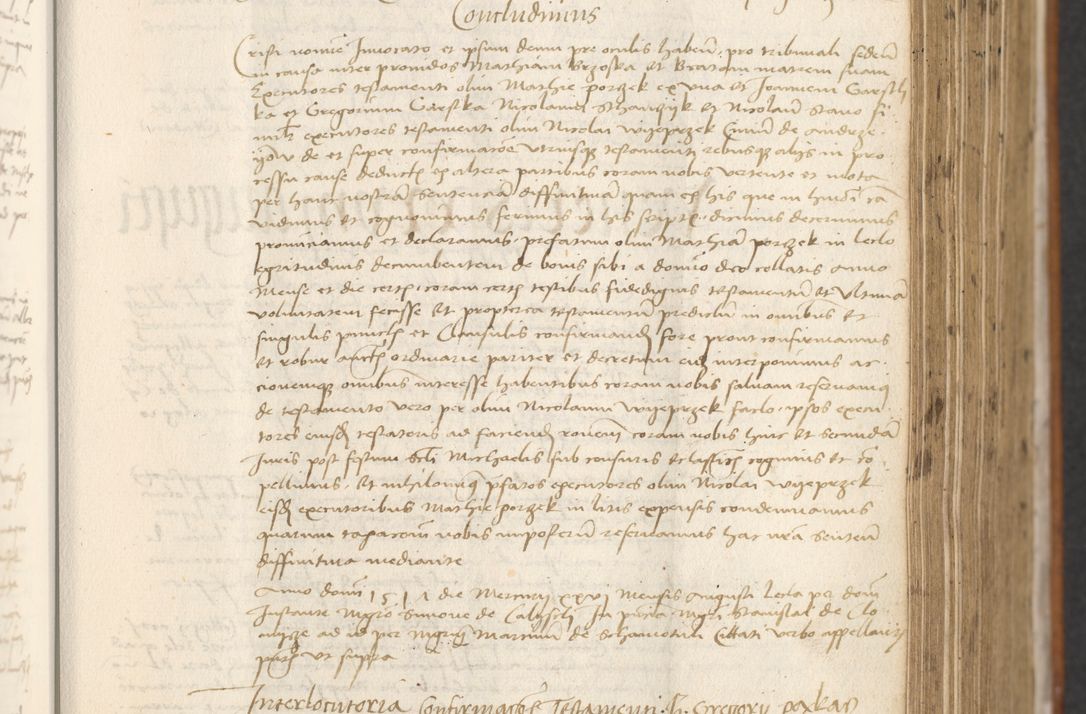 Concludimus
Cristi nomine Invocato et ipsum deum pre oculis haben pro tribunali seden
in causa inter providos Mathiam Brzoska et Beatam matrem suam
Executores testamenti olim Mathie porzek ex una et Joannem Garstk
ka et Gregorium Garstka Nicolaum et Nicolaum
executores testamenti olim Nicolai wyeprzek de andrze
yow de et super confirmacione utriusque testamenti rebusque alijs in pro
cessu cause deduct ex altera partibus coram nobis vertente et mota
per hanc nostram sentenciam diffinitivam quam ex his que in
vidimus et cognovimus ferimus in his script dicimus decernimus
pronunciamus et declaramus prefatum olim Mathiam porzek in lecto
egritudinis decumbentem de bonis sibi a domino deo collatis anno
Mense et die cert coram cert testibus fidedignis testamentum et ultimam
voluntatem fecisse et propterea testamentum predictum in omnibus et
singulis punctis et Clausulis confirmand fore prout confirmamus
et robur ordinarie pariter et decretum interponimus ac
cionemque omnibus interesse habentibus coram nobis salvam reservamus
de testamento vero per olim Nicolaum wyeprzek facto ipsos execu
tores eiusd testatoris ad faciend coram nobis hinc et secundam
Juris post festum Michaelis sub censuris cogimus et co
pellimus et nihilominus executores olim Nicolai wyeprzek
eisd executoribus Mathie porzek in litis expensis condemnamus
quarum nobis imposterum reservamus hac nra senten
diffinitiva mediante
Anno domi 1514 die Mercurij xxvi Mensis Augusti lecta per dom
Instante Mgro Simone de In Mgri Stanislai de Clo
ad id per Martinum de verbo
ut supra
Interlocutoria Confirmacionis Testamenti Gregorij